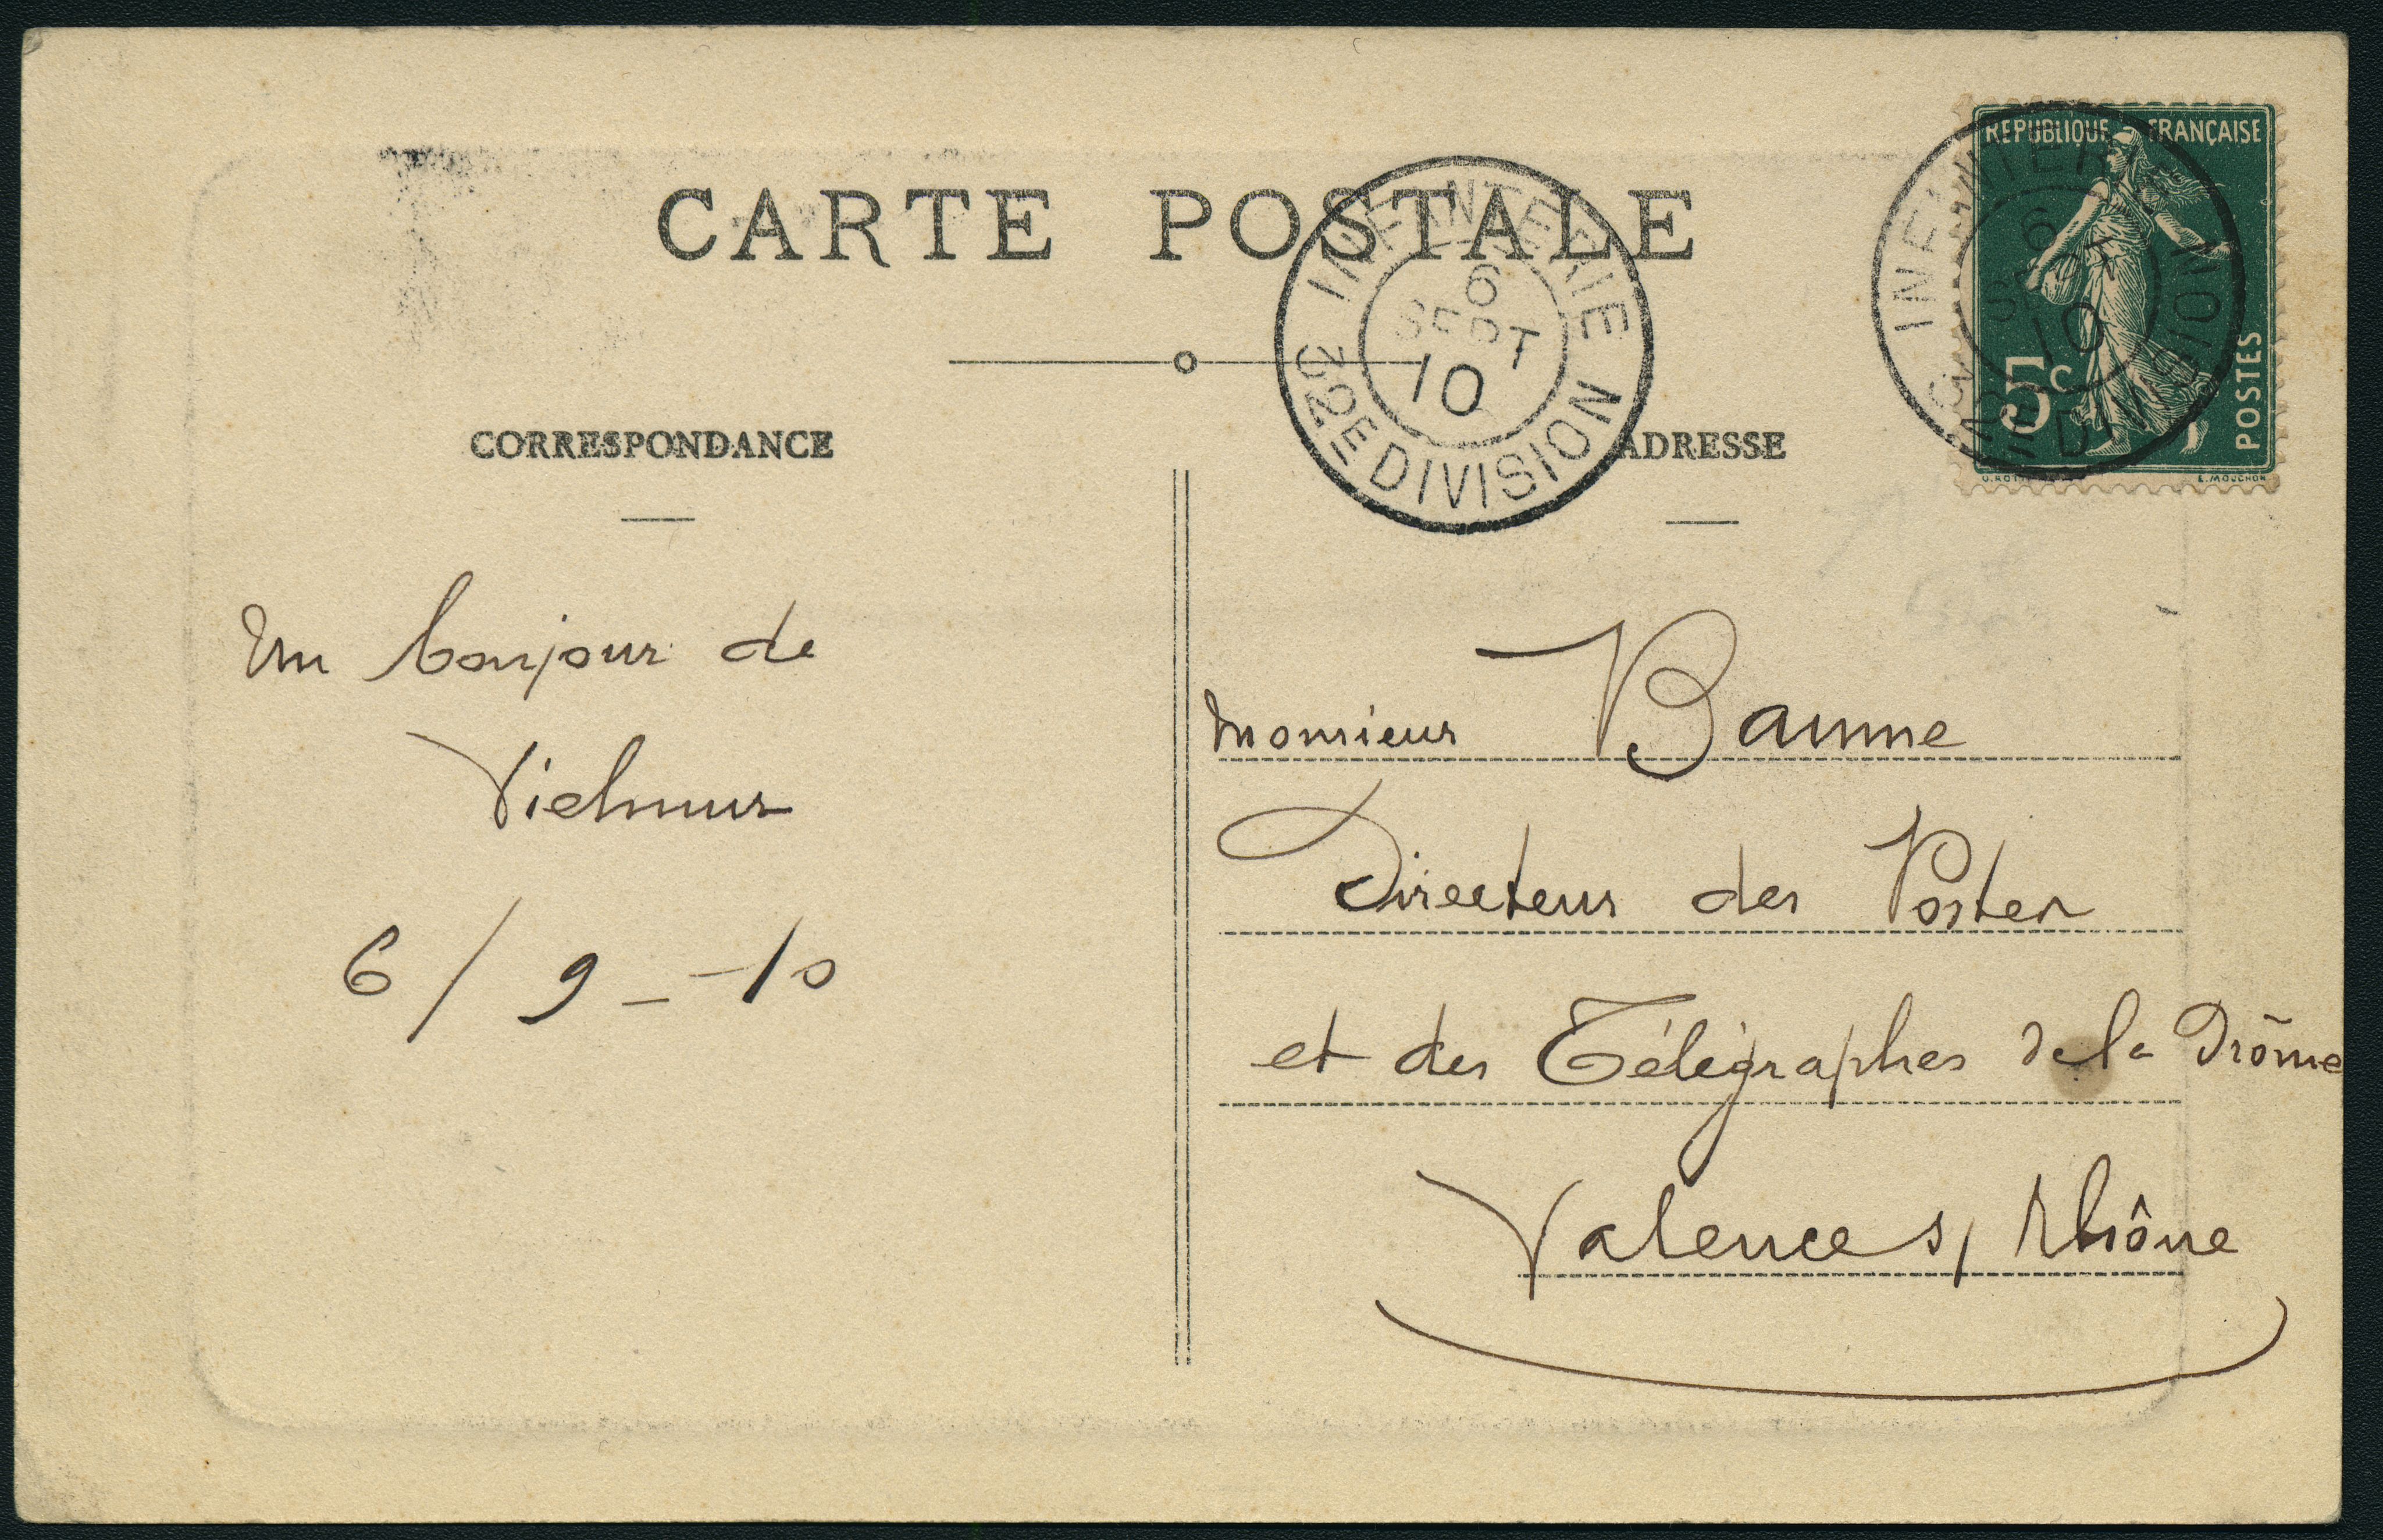 CARTE POSTALE
INFANTERIE
6
SEPT
10
32E DIVISION
RÉPUBLIQUE FRANÇAISE
5c
POSTES
L. MOUCHON
INFANTERIE
6
SEPT
10
32E DIVISION
CORRESPONDANCE
ADRESSE
Un bonjour de
Vielmur
6/9 - - 10
Monsieur Baume
Directeur des Postes
et des Télégraphes de la Drôme
Valence s/ Rhône